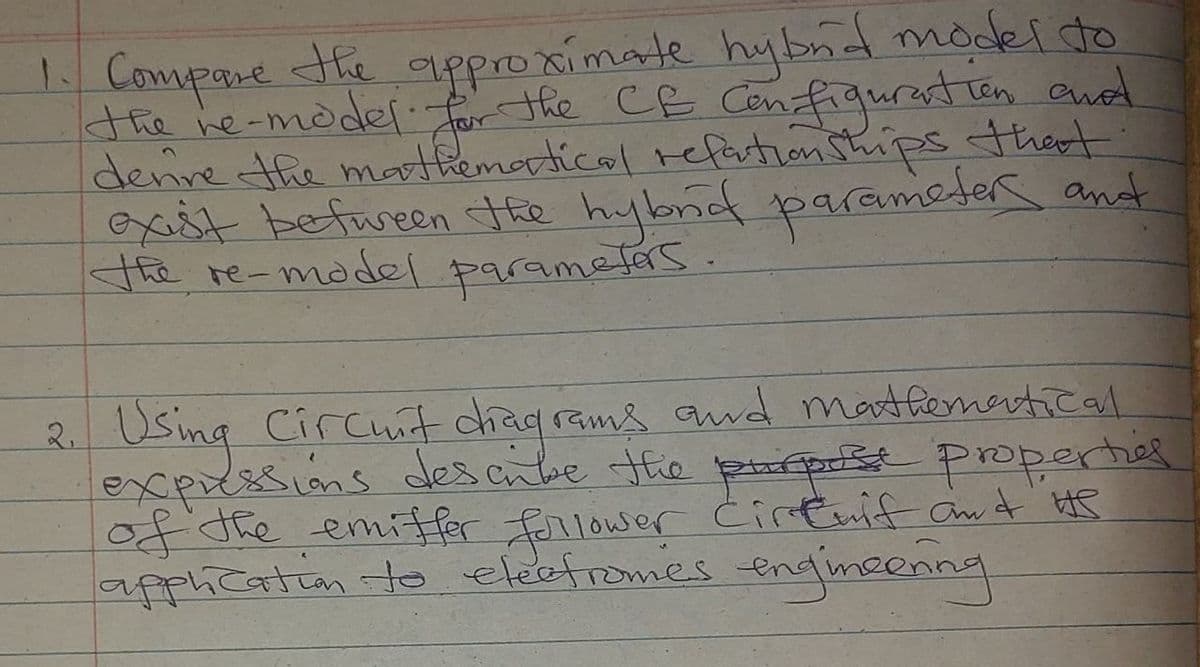 1. Compare the approximate hybrid model to
the re-model for the CE Configuration and
derive the mathematical relationships that
exist between the hybrid parameters and
the re-model parameters.
2. Using Circuit diagrams and mathematical
expressions describe the purpose properties
of the emitter follower Circuit and its
application to electronics engineering